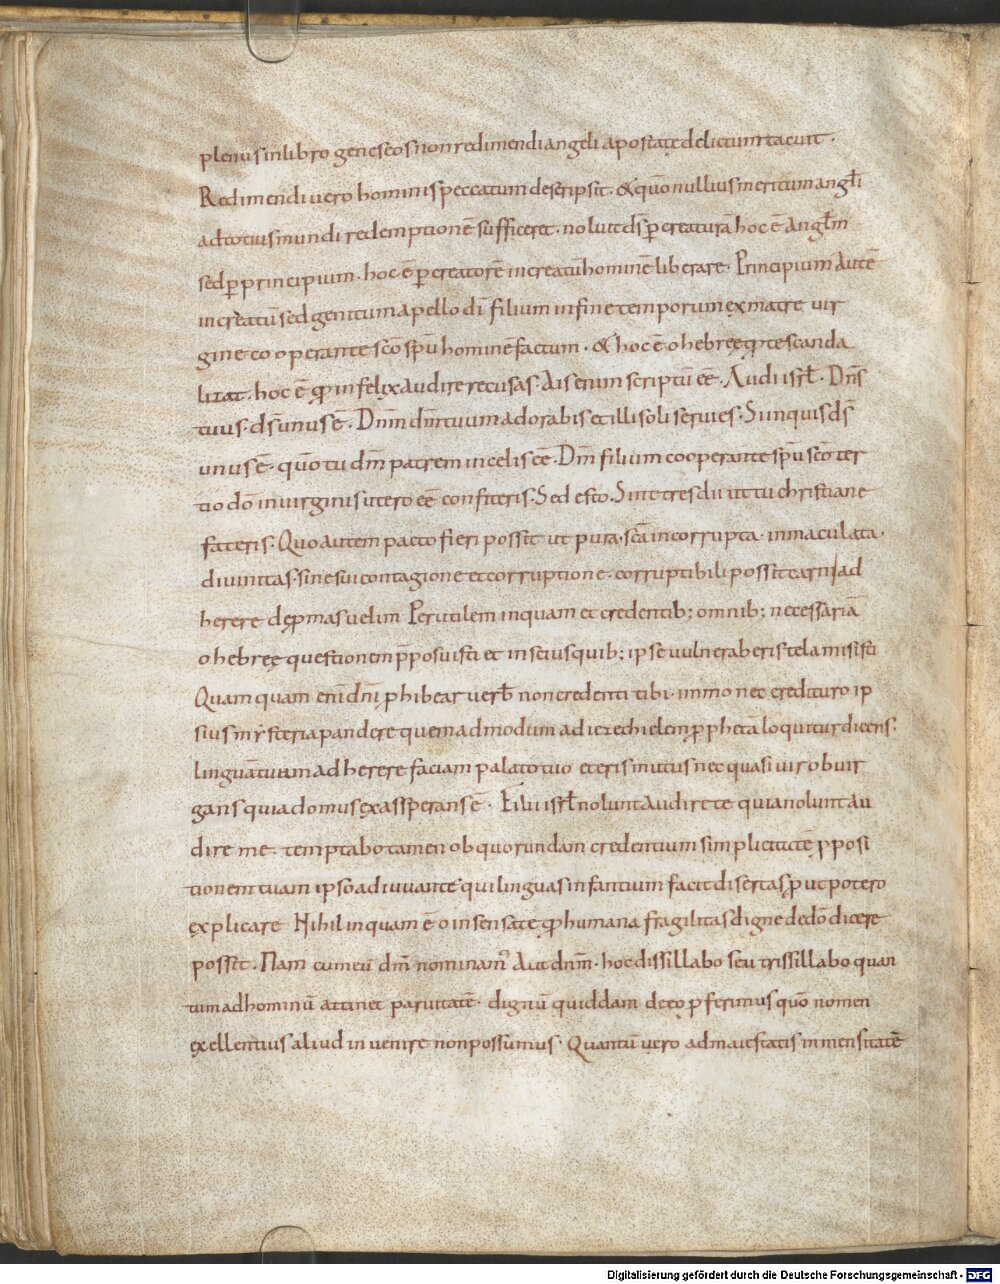 plenius in libro geneseos non redimendi angeli apostate delictum tacuit.
Redimendi vero hominis peccatum descripsit. & quō nullius meritum angłi
ad totius mundi redemptionē sufficeret. noluit ds̄ p creaturā hoc ē angłm
sed p principium. hoc ē p creatorē increatū hominē liberare. Principium autē
increatū sed genitum apello dī filium in fine temporum ex matre vir
gine cooperante sc̄o sp̄u hominē factum. & hoc ē o hebreę qđ te scanda
lizat. hoc ē qđ infelix audire recusas. Ais enim scriptū eē. Audi isrł. Dn̄s
tuus. ds̄ unus ē. Dn̄m dm̄ tuum adorabis et illi soli servies. Si inquis ds̄
unus ē. quō tu dm̄ patrem in celis eē. Dm̄ filium cooperante sp̄u sc̄o ter
tio dō in virginis utero eē confiteris. Sed esto. Sint tres dii ut tu christiane
fateris. Quo autem pacto fieri possit ut pura. sc̄a incorrupta. inmaculata.
divinitas. sine sui contagione et corruptione. corruptibili possit carni ad
herere depmas velim Perutilem inquam et credentib; omnib; necessariā
o hebreę questionem p̄posuisti et inscius quib; ipse vulneraberis tela misisti
Quam quam enī dn̄i phibear verb̄ non credenti tibi. immo nec credituro ip
sius mẏsteria pandere quemadmodum ad iezechielem pphetā loquitur dicens.
linguā tuam adherere faciam palato tuo et eris mutus nec quasi vir obiur
gans quia domus exassperans ē. Filii isrł nolunt audire te quia nolunt au
dire me. temptabo tamen ob quorundam credentium simplicitatē pposi
tionem tuam ipsō adiuvante qui linguas infantium facit disertas put potero
explicare Nihil inquam ē o insensate qđ humana fragilitas digne de dō dicere
possit. Nam cum eū dm̄ nominam᾽ aut dn̄m. hoc dissillabo seu trissillabo quan
tum ad hominū attinet parvitatē. dignū quiddam de eo pferimus quō nomen
excellentius aliud invenire non possumus. Quantū vero ad maiestatis inmensitatē